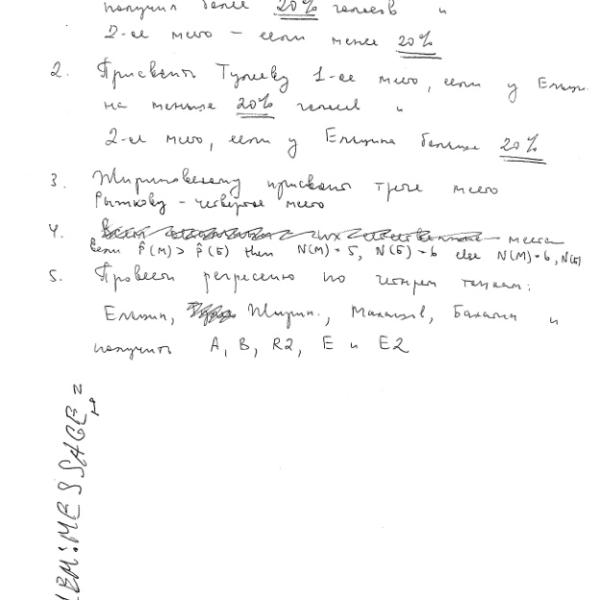 получил более 20% голосов и
2-ое место – если менее 20%
2. Присвоить Тулееву 1-ое место, если у Ельцин
на меньше 20% голосов и
2-ое место, если у Ельцина больше 20%
3. Жириновскому присвоить третье место
Рыжкову – четвертое место
4. места
Если P̂(М) > P̂(Б) then N(М)=5, N(Б)=6 else N(М)=6, N(Б)
5. Провести регрессию по четырем точкам:
Ельцин, Жирин., Макашов, Бакатин и
получить A, B, R2, E и E2
EM:MESSAGE_2